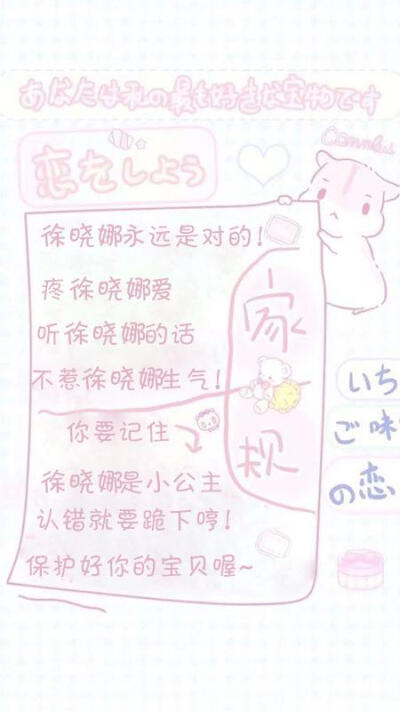 あなたは私の最も好きな宝物です
恋をしよう
徐晓娜永远是对的！
疼徐晓娜爱
听徐晓娜的话
不惹徐晓娜生气！
家规
你要记住
徐晓娜是小公主
认错就要跪下哼！
保护好你的宝贝喔~
いち
ご味
の恋